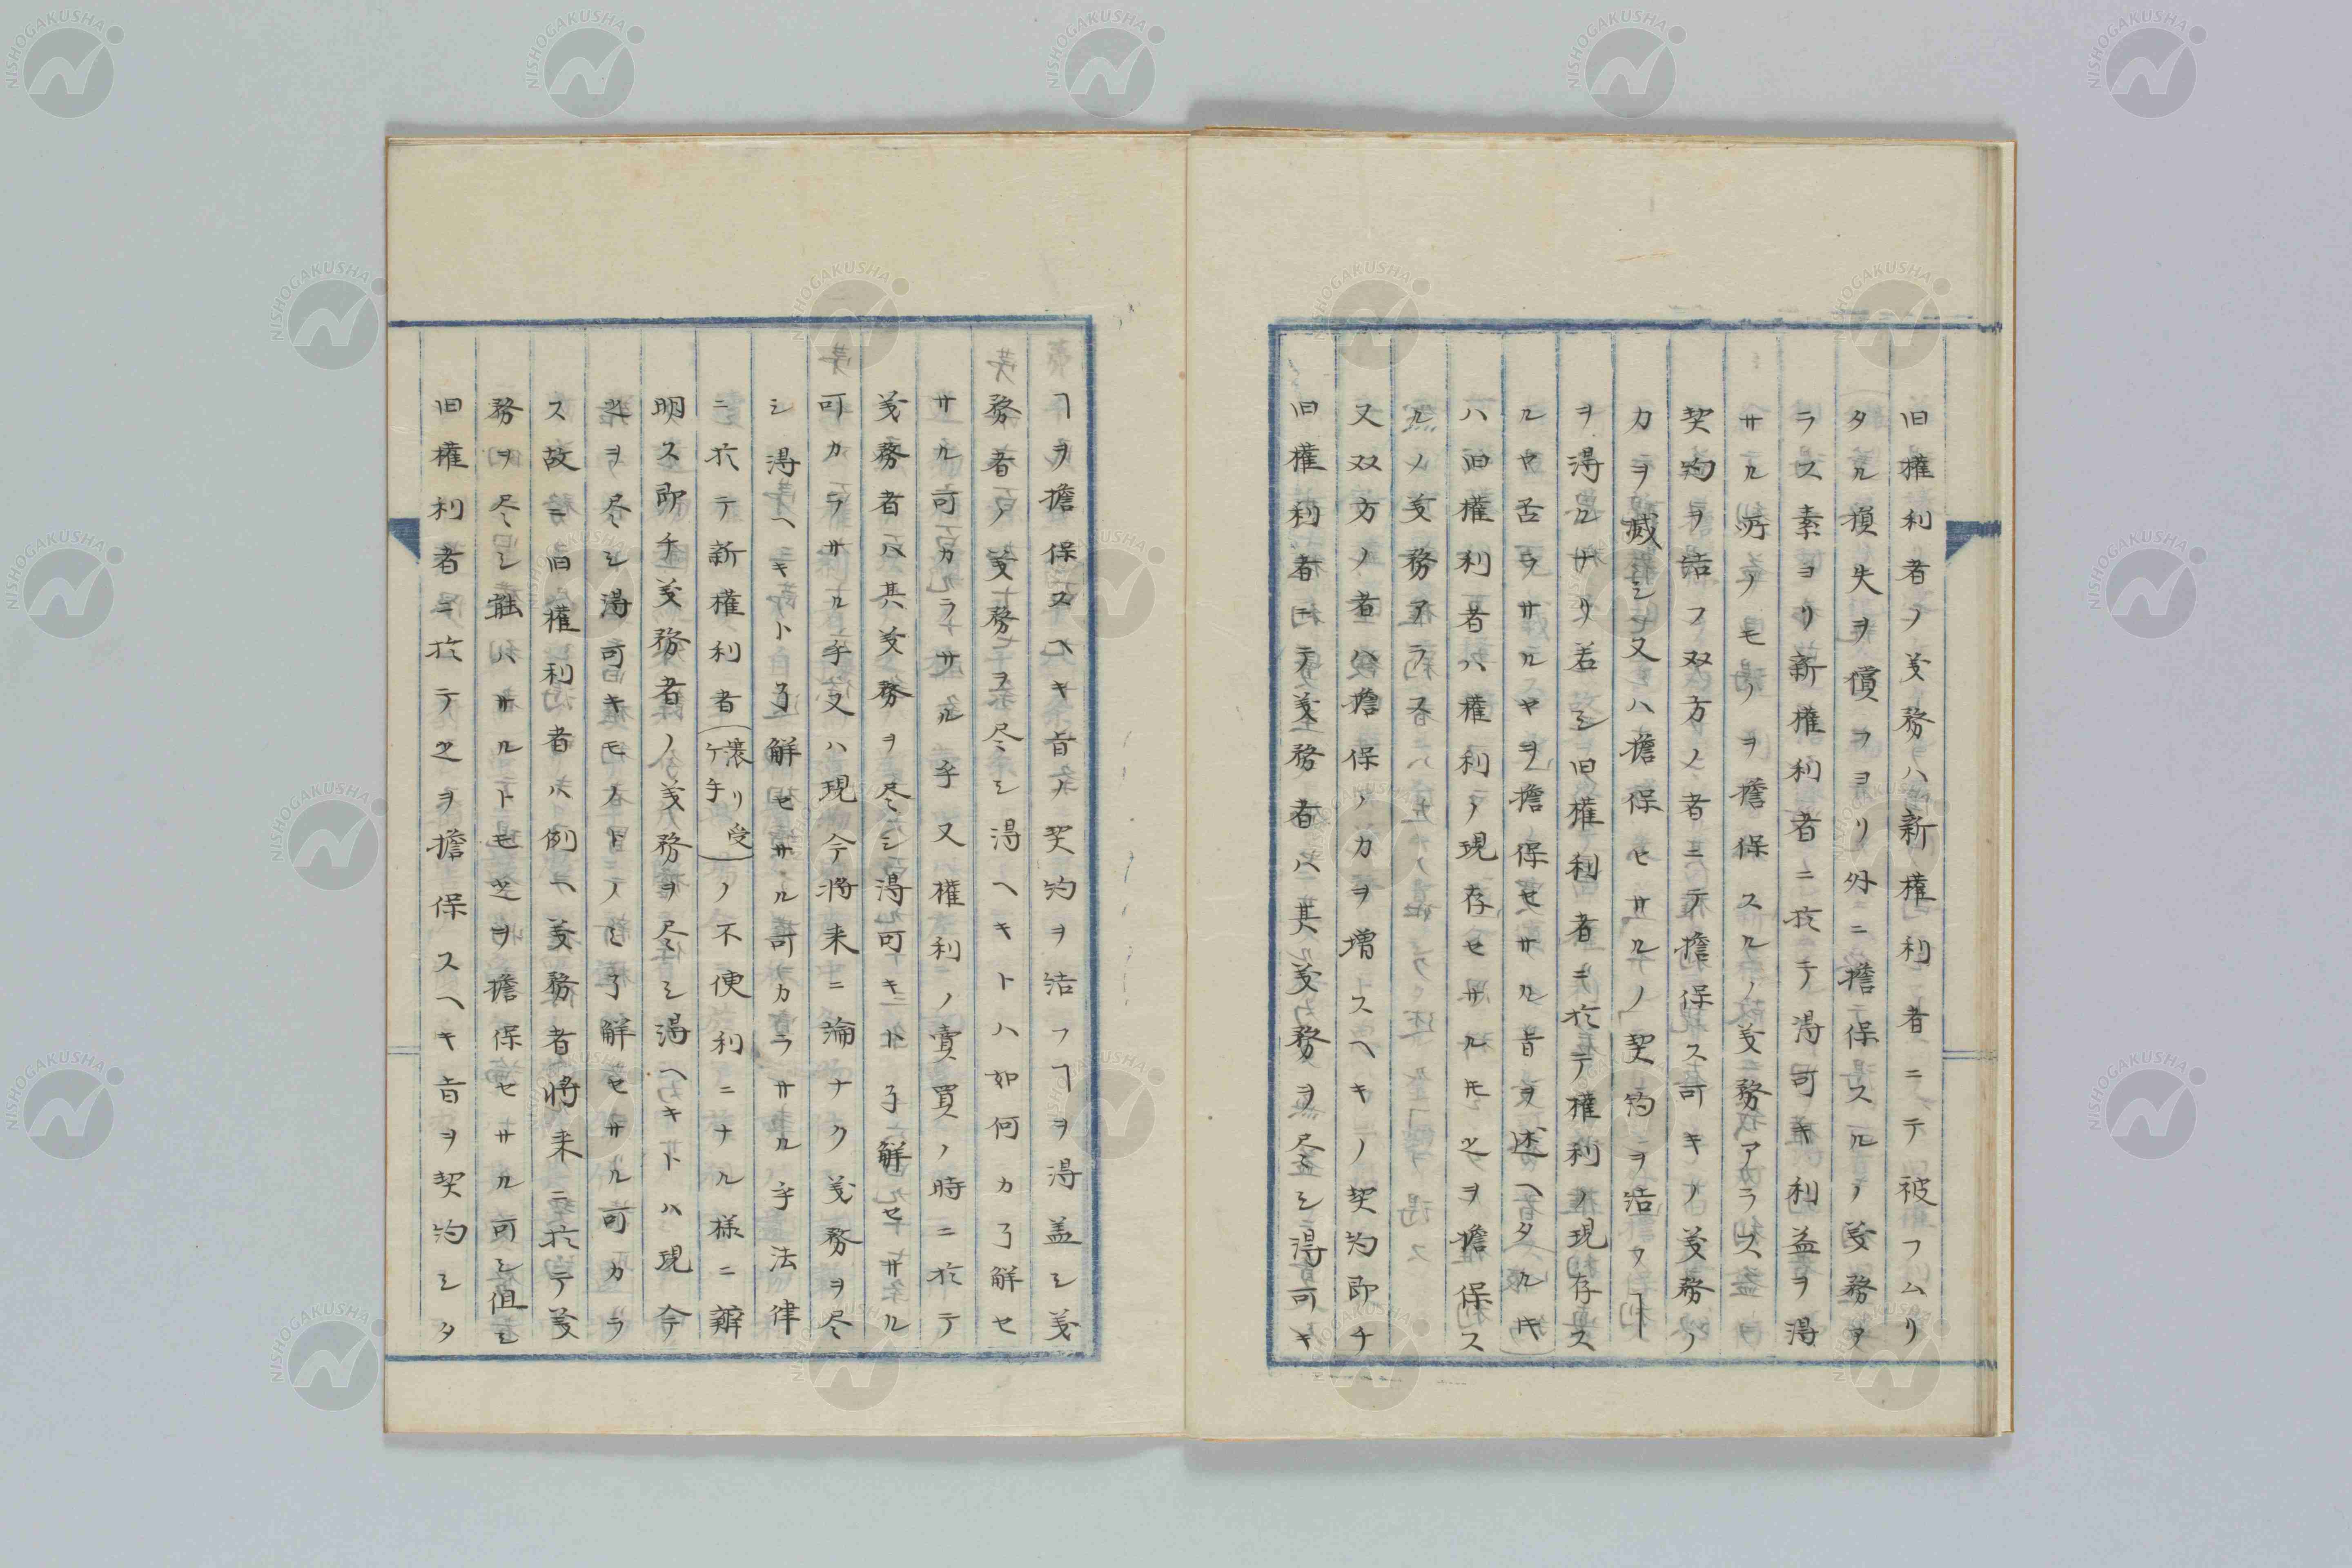 旧権利者ノ義務ハ新権利者ニテ被フムリ
タル損失ヲ償フヨリ外ニ擔保スルノ義務ア
ラス素ヨリ新権利者ニ於テ得可キ利益ヲ得
サル所ノモノヲ擔保スルノ義務アラス
契約ヲ結フ双方ノ者ニテ擔保ス可キノ義務ノ
力ヲ減シ又ハ擔保セサルノ契約ヲ結フヿ
ヲ得ルナリ若シ旧権利者ニ於テ権利ノ現存ス
ルヤ否ラサルヤヲ擔保セサル旨ヲ述ヘタルトキ
ハ旧権利者ハ権利ノ現存セサルモ之ヲ擔保ス
ルノ義務アラス
又双方ノ者ハ擔保ノ力ヲ増スヘキノ契約即チ
旧権利者ニテ義務者ハ其義務ヲ尽シ得可キ
ヿヲ擔保スヘキ旨ノ契約ヲ結フヿヲ得蓋シ義
務者ノ義務ヲ尽シ得ヘキトハ如何カ了解セ
サル可カラサル乎又権利ノ賣買ノ時ニ於テ
義務者ハ其義務ヲ尽シ得可キト了解セサル
可カラサル乎又ハ現今将来ニ論ナク義務ヲ尽
シ得ヘキト了解セサル可カラサル乎法律
ニ於テ新権利者(譲リ受ケ手)ノ不便利ニナル様ニ辯
明ス即チ義務者ノ義務ヲ尽シ得ヘキトハ現今
之ヲ尽シ得可キモノトノミ了解セサル可カラ
ス故ニ旧権利者ハ例ヘ義務者将来ニ於テ義
務ヲ尽シ能ハサルトモ之ヲ擔保セサル可シ但シ
旧権利者ニ於テ之ヲ擔保スヘキ旨ヲ契約シタ
NISHOGAKUSHA